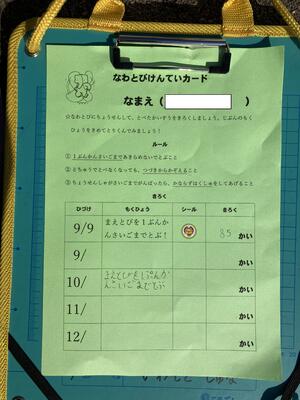 なわとびけんていカード
なまえ（　　　　）
☆なわとびにちょうせんして、とべたかいすうをきろくしましょう。じぶんのもく
ひょうをきめてとりくんでみましょう！
ルール
① １ぷんかんさいごまであきらめないでとぶこと
② とちゅうでとべなくなっても、つづきからかぞえること
③ ちょうせんしゃがさいごまでがんばったら、かならずはくしゅをしてあげること
きろく
ひづけ もくひょう シール きろく
9/9 まえとびを１ぷんか
んさいごまでとぶ！ 85 かい
9/ かい
10/ まえとびを1ぷんか
んさいごまでとぶ かい
11/ かい
12/ かい